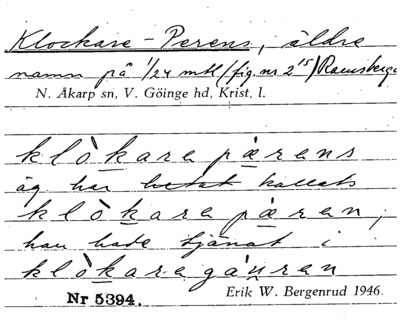 Klockare-Perens, äldre
namn på 1/24 mtl (fig. nr 2¹⁵) Ramsberga
N. Åkarp sn, V. Göinge hd, Krist. l.
klòkara pærens
äg har hetat kallats
klòkara pæren,
han hade tjänat i
klòkaregåɲren
Nr 5394. Erik W. Bergenrud 1946.